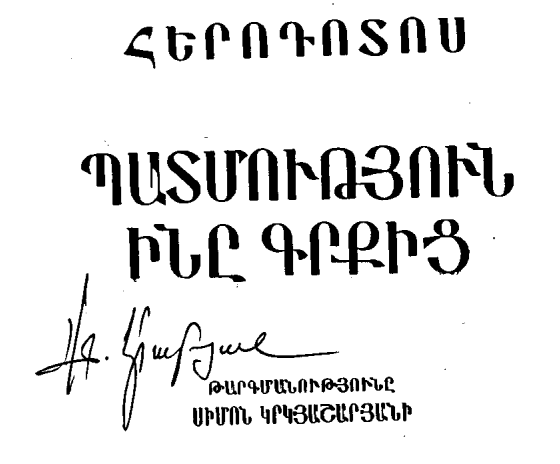 ՀԵՐՈԴՈՏՈՍ
ՊԱՏՄՈՒԹՅՈՒՆ
ԻՆԸ ԳՐՔԻՑ
ԹԱՐԳՄԱՆՈՒԹՅՈՒՆԸ
ՍԻՄՈՆ ԿՐԿՅԱՇԱՐՅԱՆԻ